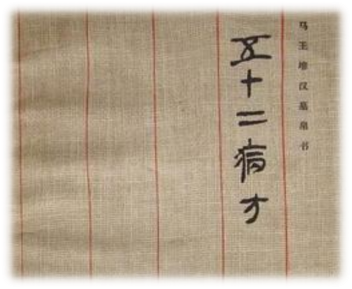 马王堆汉墓帛书
五十二病方